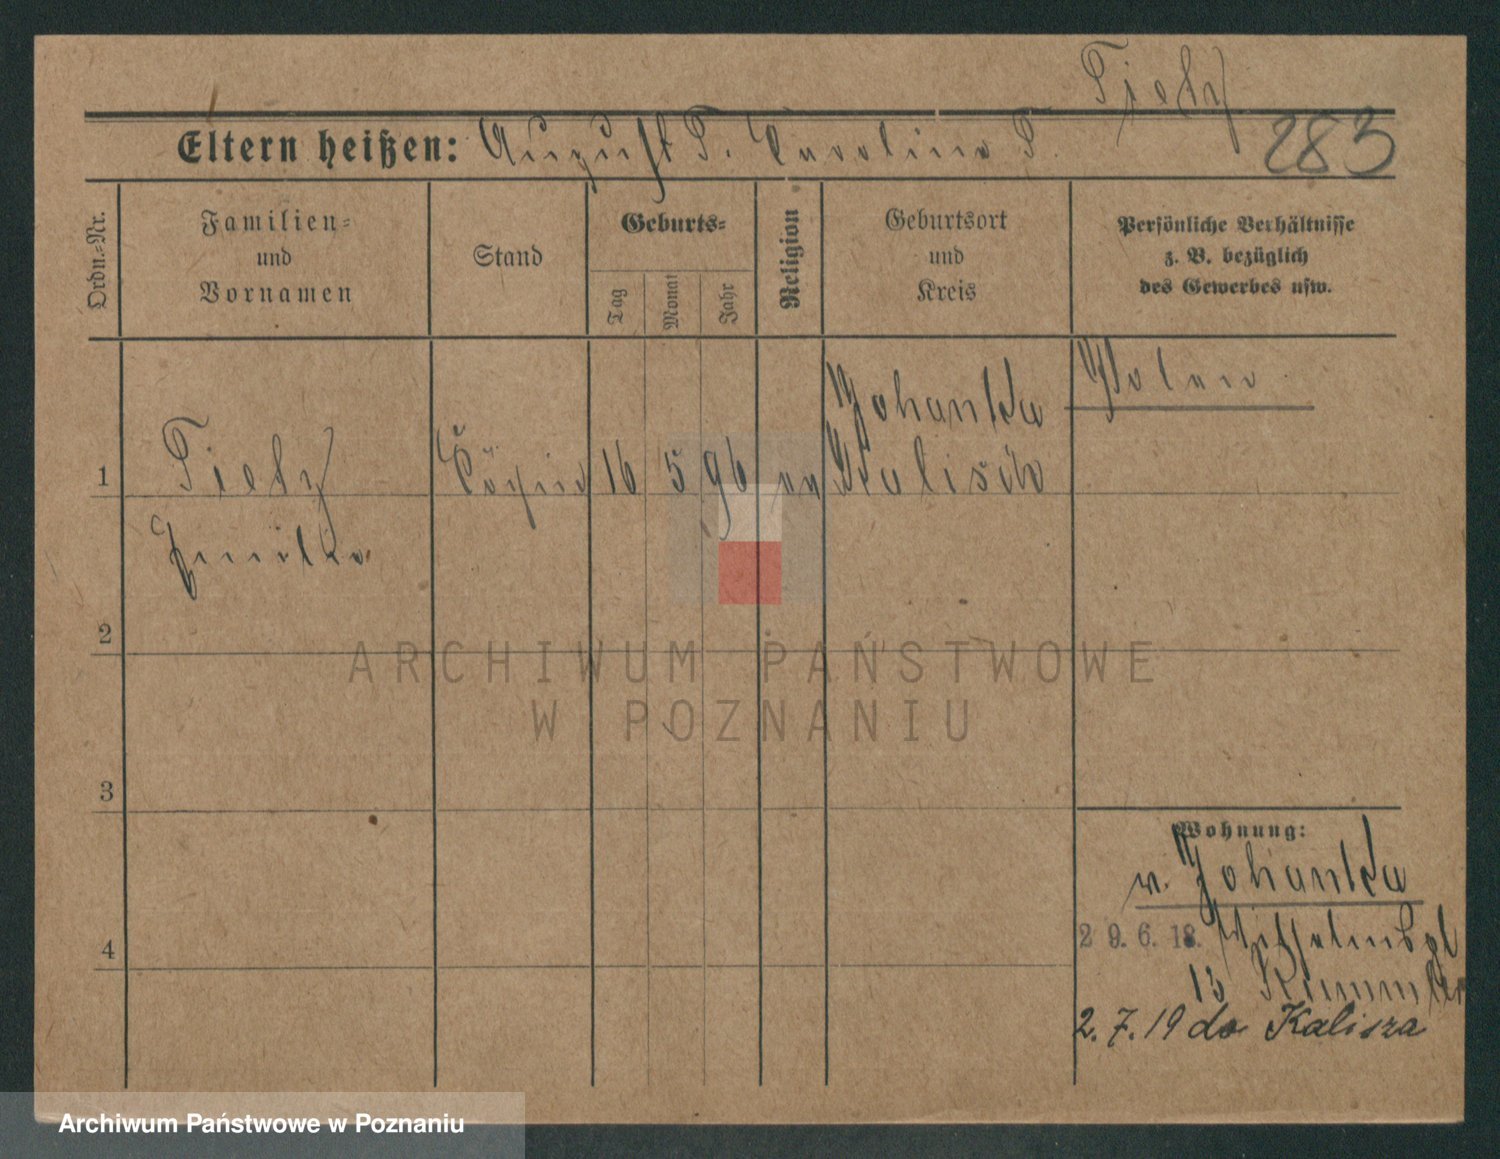 Tietz
Eltern heißen: August T. Caroline T.
283
Ordn.-Nr.
Familien-
und
Vornamen
Stand
Geburts-
Tag
Monat
Jahr
Religion
Geburtsort
und
Kreis
Persönliche Verhältnisse
z. B. bezüglich
des Gewerbes usw.
Johanka
Polen
1
Tietz
Köchin
16
5
96
ev
Kalisch
Emilie
2
3
4
Wohnung:
v. Johanka
29.6.18.
13
2.7.19 do Kalisza
ARCHIWUM PAŃSTWOWE
W POZNANIU
Archiwum Państwowe w Poznaniu